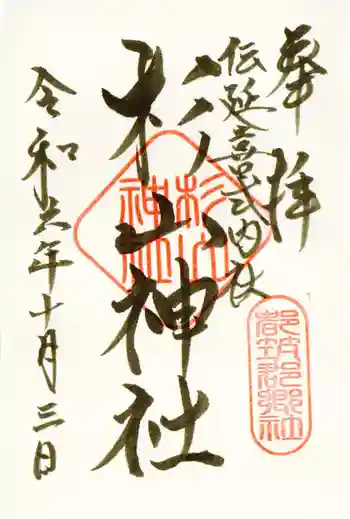 奉拝
伝延喜式内社
杉山神社
令和六年十月三日
杉山
神社
都筑郡郷社